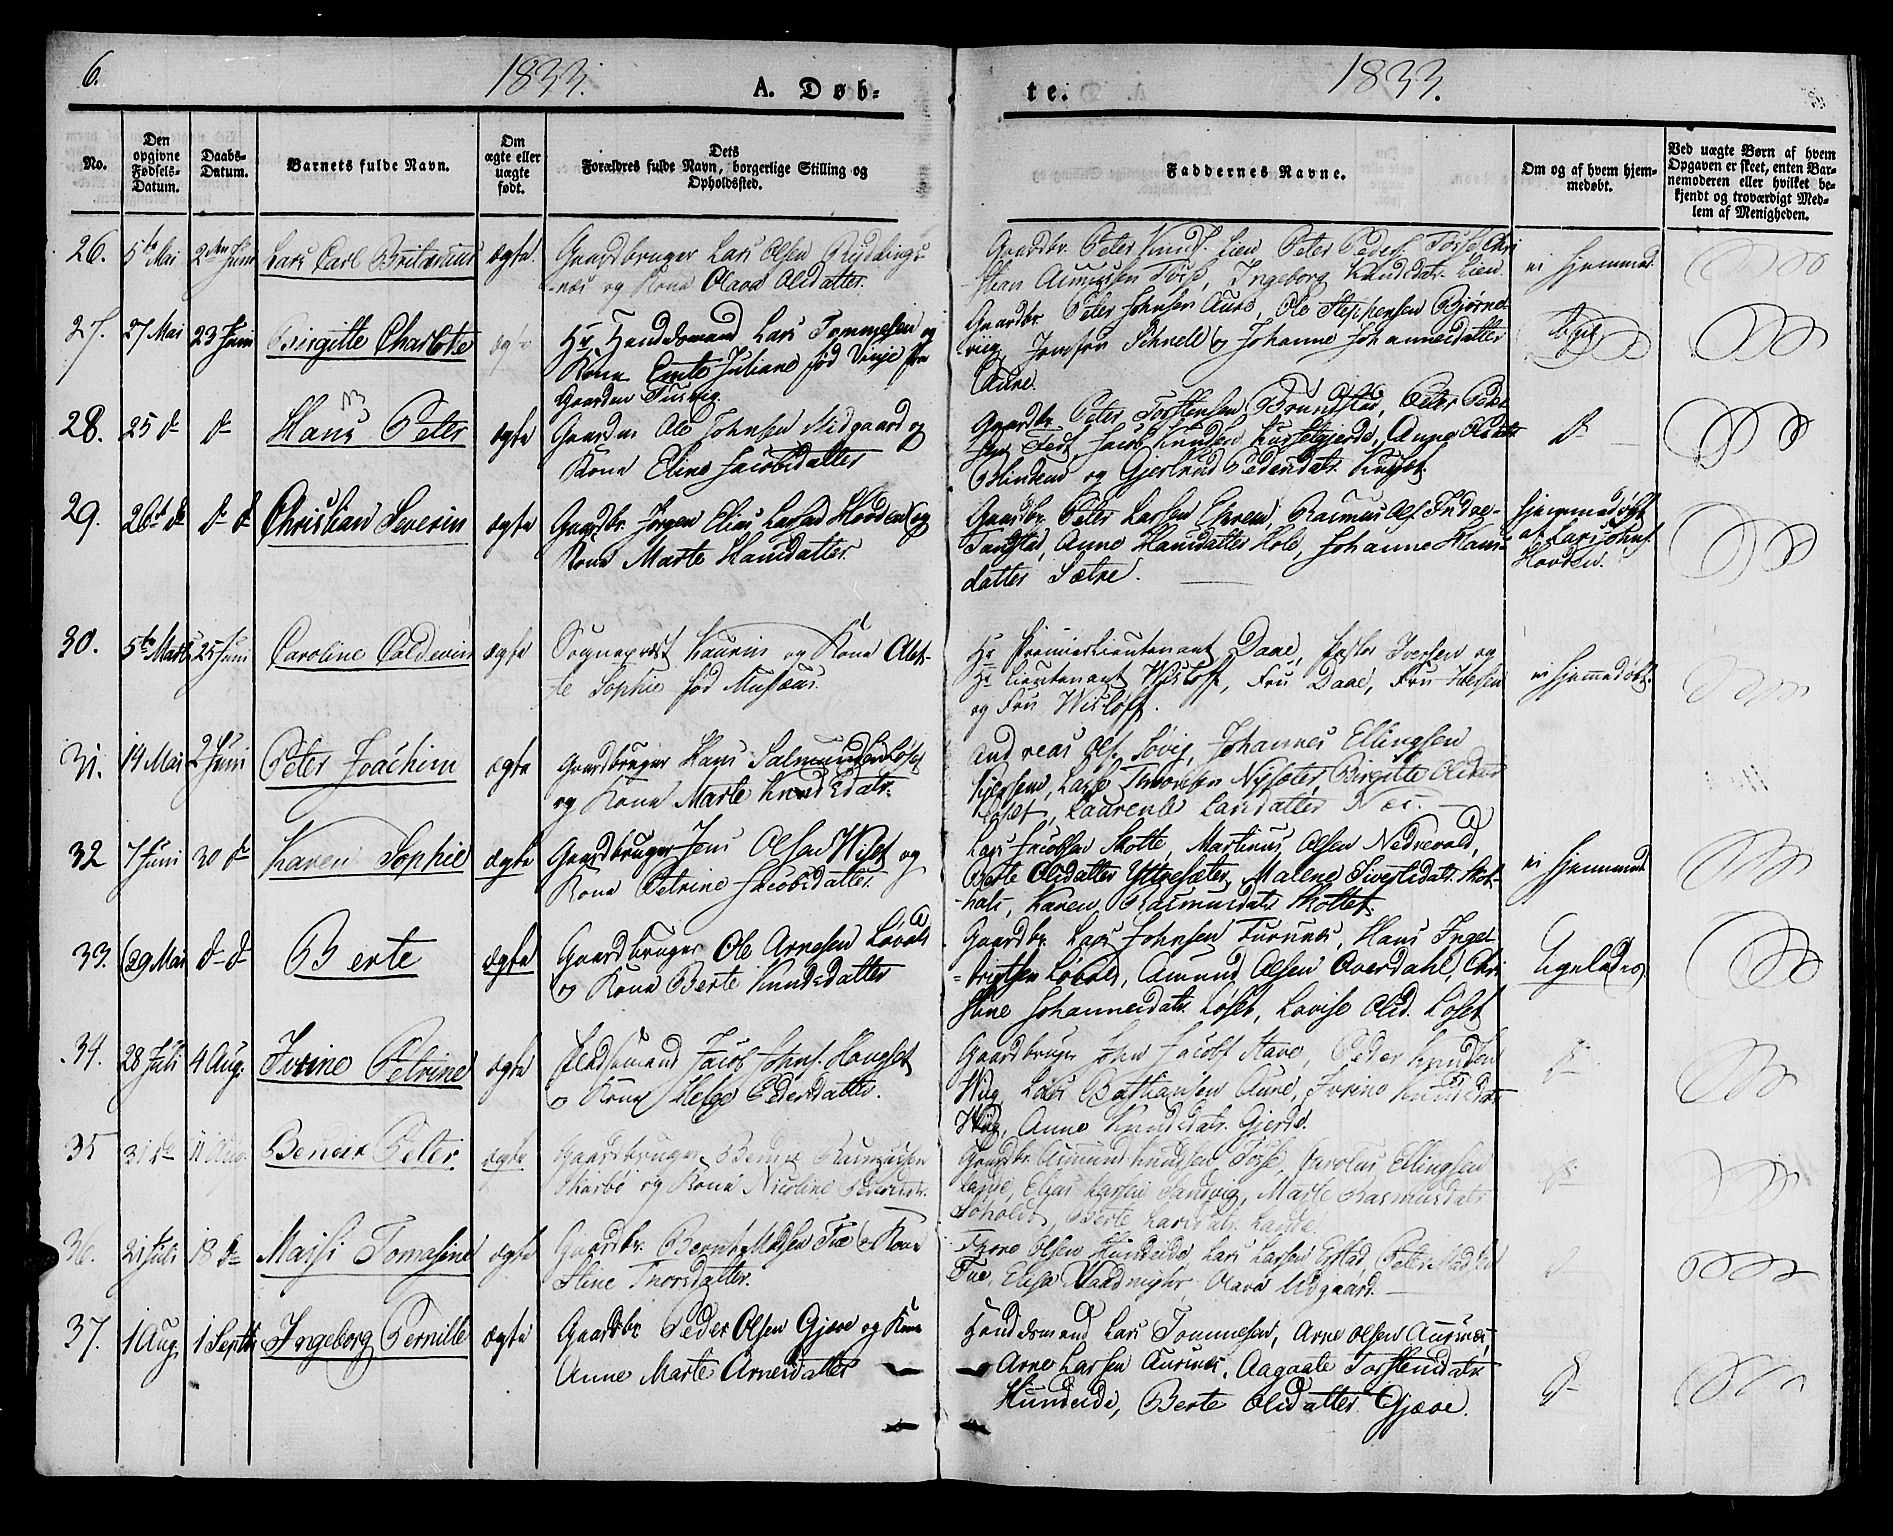 6.
1833.
A. Døb-
te.
1833.
No.
Den opgivne Fødsels-Datum.
Daabs-Datum.
Barnets fulde Navn.
Om ægte eller uægte født.
Dets
Forældres fulde Navn, borgerlige Stilling og
Opholdssted.
Faddernes Navne.
Om og af hvem hjem-
medøbt.
Ved uægte Børn af hvem
Opgaven er skeet, enten Bar-
nemoderen eller hvilket be-
kjendt og troværdigt Med-
lem af Menigheden.
26. 5te Mai 2den Juni Lars Carl ægte Gaardbruger Lars Olsen
og Kona Olava Olsdatter
Gaardbr. Peter Knuds. Lien Peter Peders. Tosse Chri
stian Amundsen Tosse, Ingeborg Knudsdatr. Lien.
ei hjemmed.
27. 27 Mai 23 Juni Birgitte Charlotte ægte Hr. Handelsmand Lars Tommesen og
Kona Emte Juliane fød Vinje fra
Gaarden
Gaardbr. Peter Johnsen Aure, Ole Steffensen Bjørne
viig, Jomfru Schnell og Johanne Johannesdatter
Aure.
28. 25 d 	d Hans Peter ægte Gaardm. Ole Johnsen Midgaard og
Kona Eline Jacobsdatter
Gaardbr. Peter Torstensen Brundstad, Peter Peder
sen Fedt Jacob Knudsen Anne Olsdatr
Blindem og Gjertrud Pedersdatr.
d
29. 26d d d d Christian Severin ægte Gaardbr. Jørgen Elias Larsen Hovden og
Kona Marte Hansdatter.
Gaardbr. Peter Larsen Rasmus Ols. Indre-
Tandstad, Anne Hansdatter Hole, Johanne Hans-
datter Sætre.
hjemmedøbt
af Lars Johns.
Hovden.
30. 5te Marts 25 Juni Caroline ægte Sogneprest Kaurin og Kona Alet-
te Sophie fød Musæus.
Hr. Premierlieutenant Daae, Pastor Iversen og
Hr. Lieutenant Wisløff, Fru Daae, Fru Iversen
og Fru Wisløff.
ei hjemmedøbt.
31. 14 Mai 2 Juni Peter Joachim ægte Gaardbruger Hans Salmundsen Løset
og Kona Marte Knudsdatr.
Andreas Ols. Søvig, Johannes Ellingsen
Lasse Nysæter, Birgitte Olsdatr
Løset, Laurense Larsdatter Næs.
32 7 Juni 30 d Karen Sophie ægte Gaardbruger Jens Olsen Wiset og
Kona Petrine Jacobsdatter.
Lars Jacobsen Skotte, Martinus Olsen Nedrevold,
Berte Olsdatter Yttresæter, Malene Sivertsdatr. Skot-
Karen Rasmusdatr. Skottet.
ei hjemmed.
33. 29 Mai d d Berte ægte Gaardbruger Ole Arnesen Løvold
og Kona Berte Knudsdatter
Gaardbr. Lars Johnsen Hans Ingel-
brigtsen Løvold, Amund Olsen Overdahl, Chri
stine Johannesdatr. Løset, Lovise Olsd. Løset
Ligeledes.
34. 28 Juli 4 Aug. Ivrine Petrine ægte Pladsemand Jacob Johns. Haugset
og Kona Helge Pedersdatter.
Gaardbruger John Jacobs Stave, Peder Knudsen
Wiig, Lars Aure, Ivrine Knudsdatr.
Wiig, Anne Knudsdatr. Gjerde.
d
35 31 d 11 Aug. Bendix Peter. ægte Gaardbruger Bendix Rasmussen
Skarbø og Kona Nicoline Pedersdatr.
Gaardbr. Asmund Knudsen Tosse, Carolus Ellingsen
Elias Larsen Sandvig, Marte Rasmusdatr
Berte Larsdatr.
d
36. 21 Juli 18 d Massi Tomasine ægte Gaardbr. Bernt Madsen Tue og Kona
Stine Thorsdatter.
Thore Olsen Hundeide Lars Larsen Erstad, Peter Madsen
Tue, Elisa Olava Udgaard.
d
37. 1 Aug. 1 Septb. Ingeborg Pernille ægte Gaardbr. Peder Olsen Gjæve og Kona
Anne Marte Arnesdatter
Handelsmand Lars Tommesen, Arne Olsen Aursnes,
Arne Larsen Aursnes, Aagaate Torstendatr.
Hundeide, Berte Olsdatter Gjæve.
d